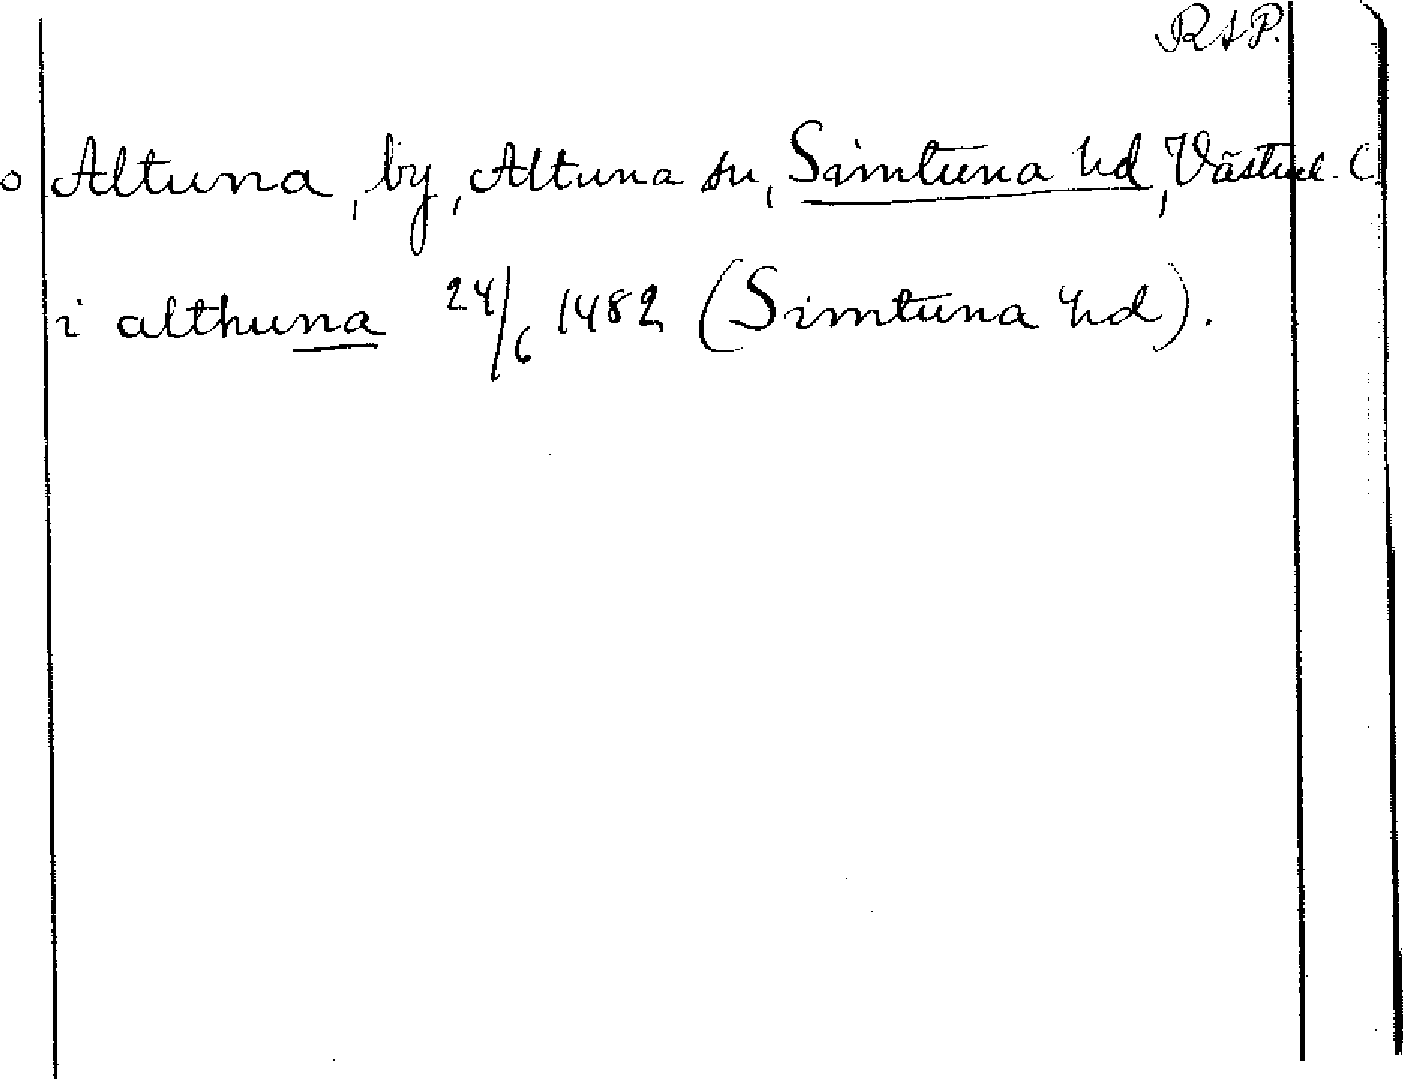 RAP.
o Altuna, by, Altuna sn, Simtuna hd, Västml. C.
i althuna 24/6 1482 (Simtuna hd).